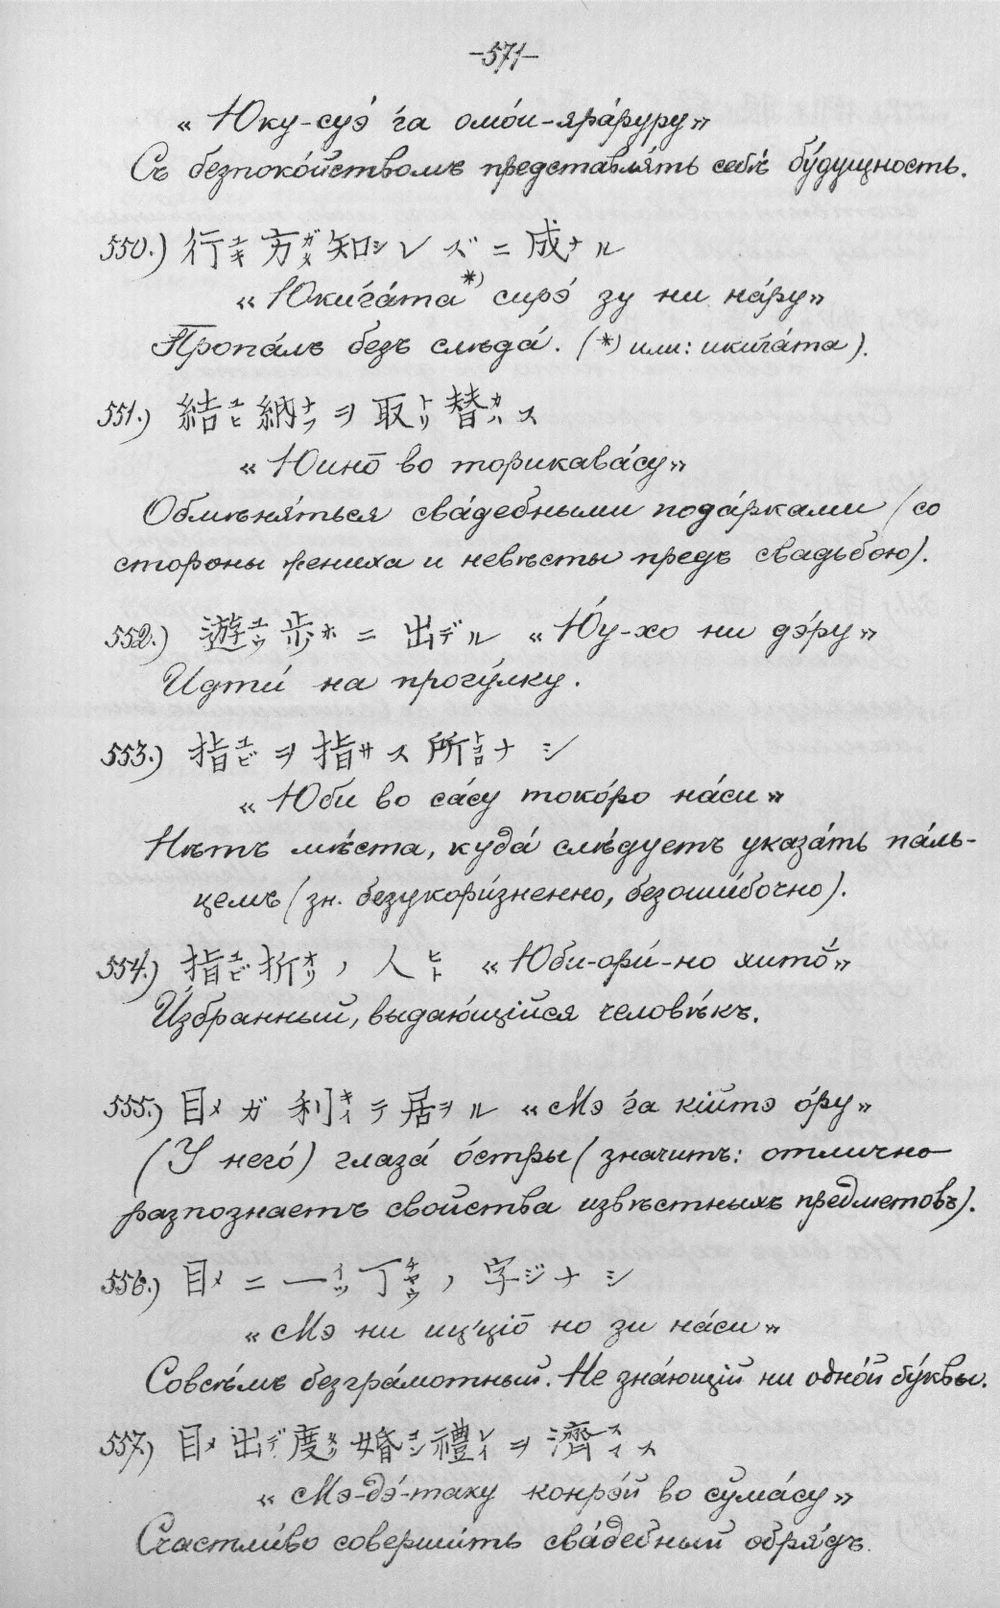 –571–
« Юку-суэ́ га омо́и-яра́руру »
Съ безпоко́йствомъ представля́ть себѣ́ бу́дущность.
550.) 行ユキ方ガタ知シレズニ成ナル
« Юкига́та*) сирэ́ зу ни на́ру »
Пропа́лъ безъ слѣда́. (*) или: икига́та).
551.) 結ユヒ納ナフヲ取トリ替カハス
« Юино̄ во торикава́су »
Обмѣня́ться сва́дебными пода́рками (со
стороны жениха и невѣсты предъ свадьбою).
552.) 遊ユウ歩ホニ出デル « Ю́у-хо ни дэ́ру »
Идти́ на прогу́лку.
553.) 指ユビヲ指サス所トコロナシ
« Юби во са́су токо́ро на́си »
Нѣтъ мѣ́ста, куда́ слѣ́дуетъ указа́ть па́ль-
цемъ (зн. безукори́зненно, безоши́бочно).
554.) 指ユビ折オリノ人ヒト « Юби-ори́-но хито́ »
И́збранный, выдаю́щійся человѣ́къ.
555.) 目メガ利キイテ居ヲル « Мэ га кійтэ о́ру »
(У него́) глаза́ о́стры (значитъ: отлично
разпознаетъ свойства извѣстныхъ предметовъ).
556.) 目メニ一イツ丁チヤウノ字ジナシ
« Мэ ни иц'ціо̄ но зи на́си »
Совсѣ́мъ безгра́мотный. Не зна́ющій ни одно́й бу́квы.
557.) 目メ出デ度タク婚コン禮レイヲ濟スマス
« Мэ-дэ́-таку конрэ́й во сӯма́су »
Счастли́во соверши́ть сва́дебный обря́дъ.